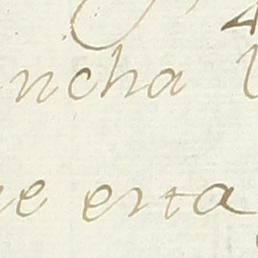 ncha
e esta